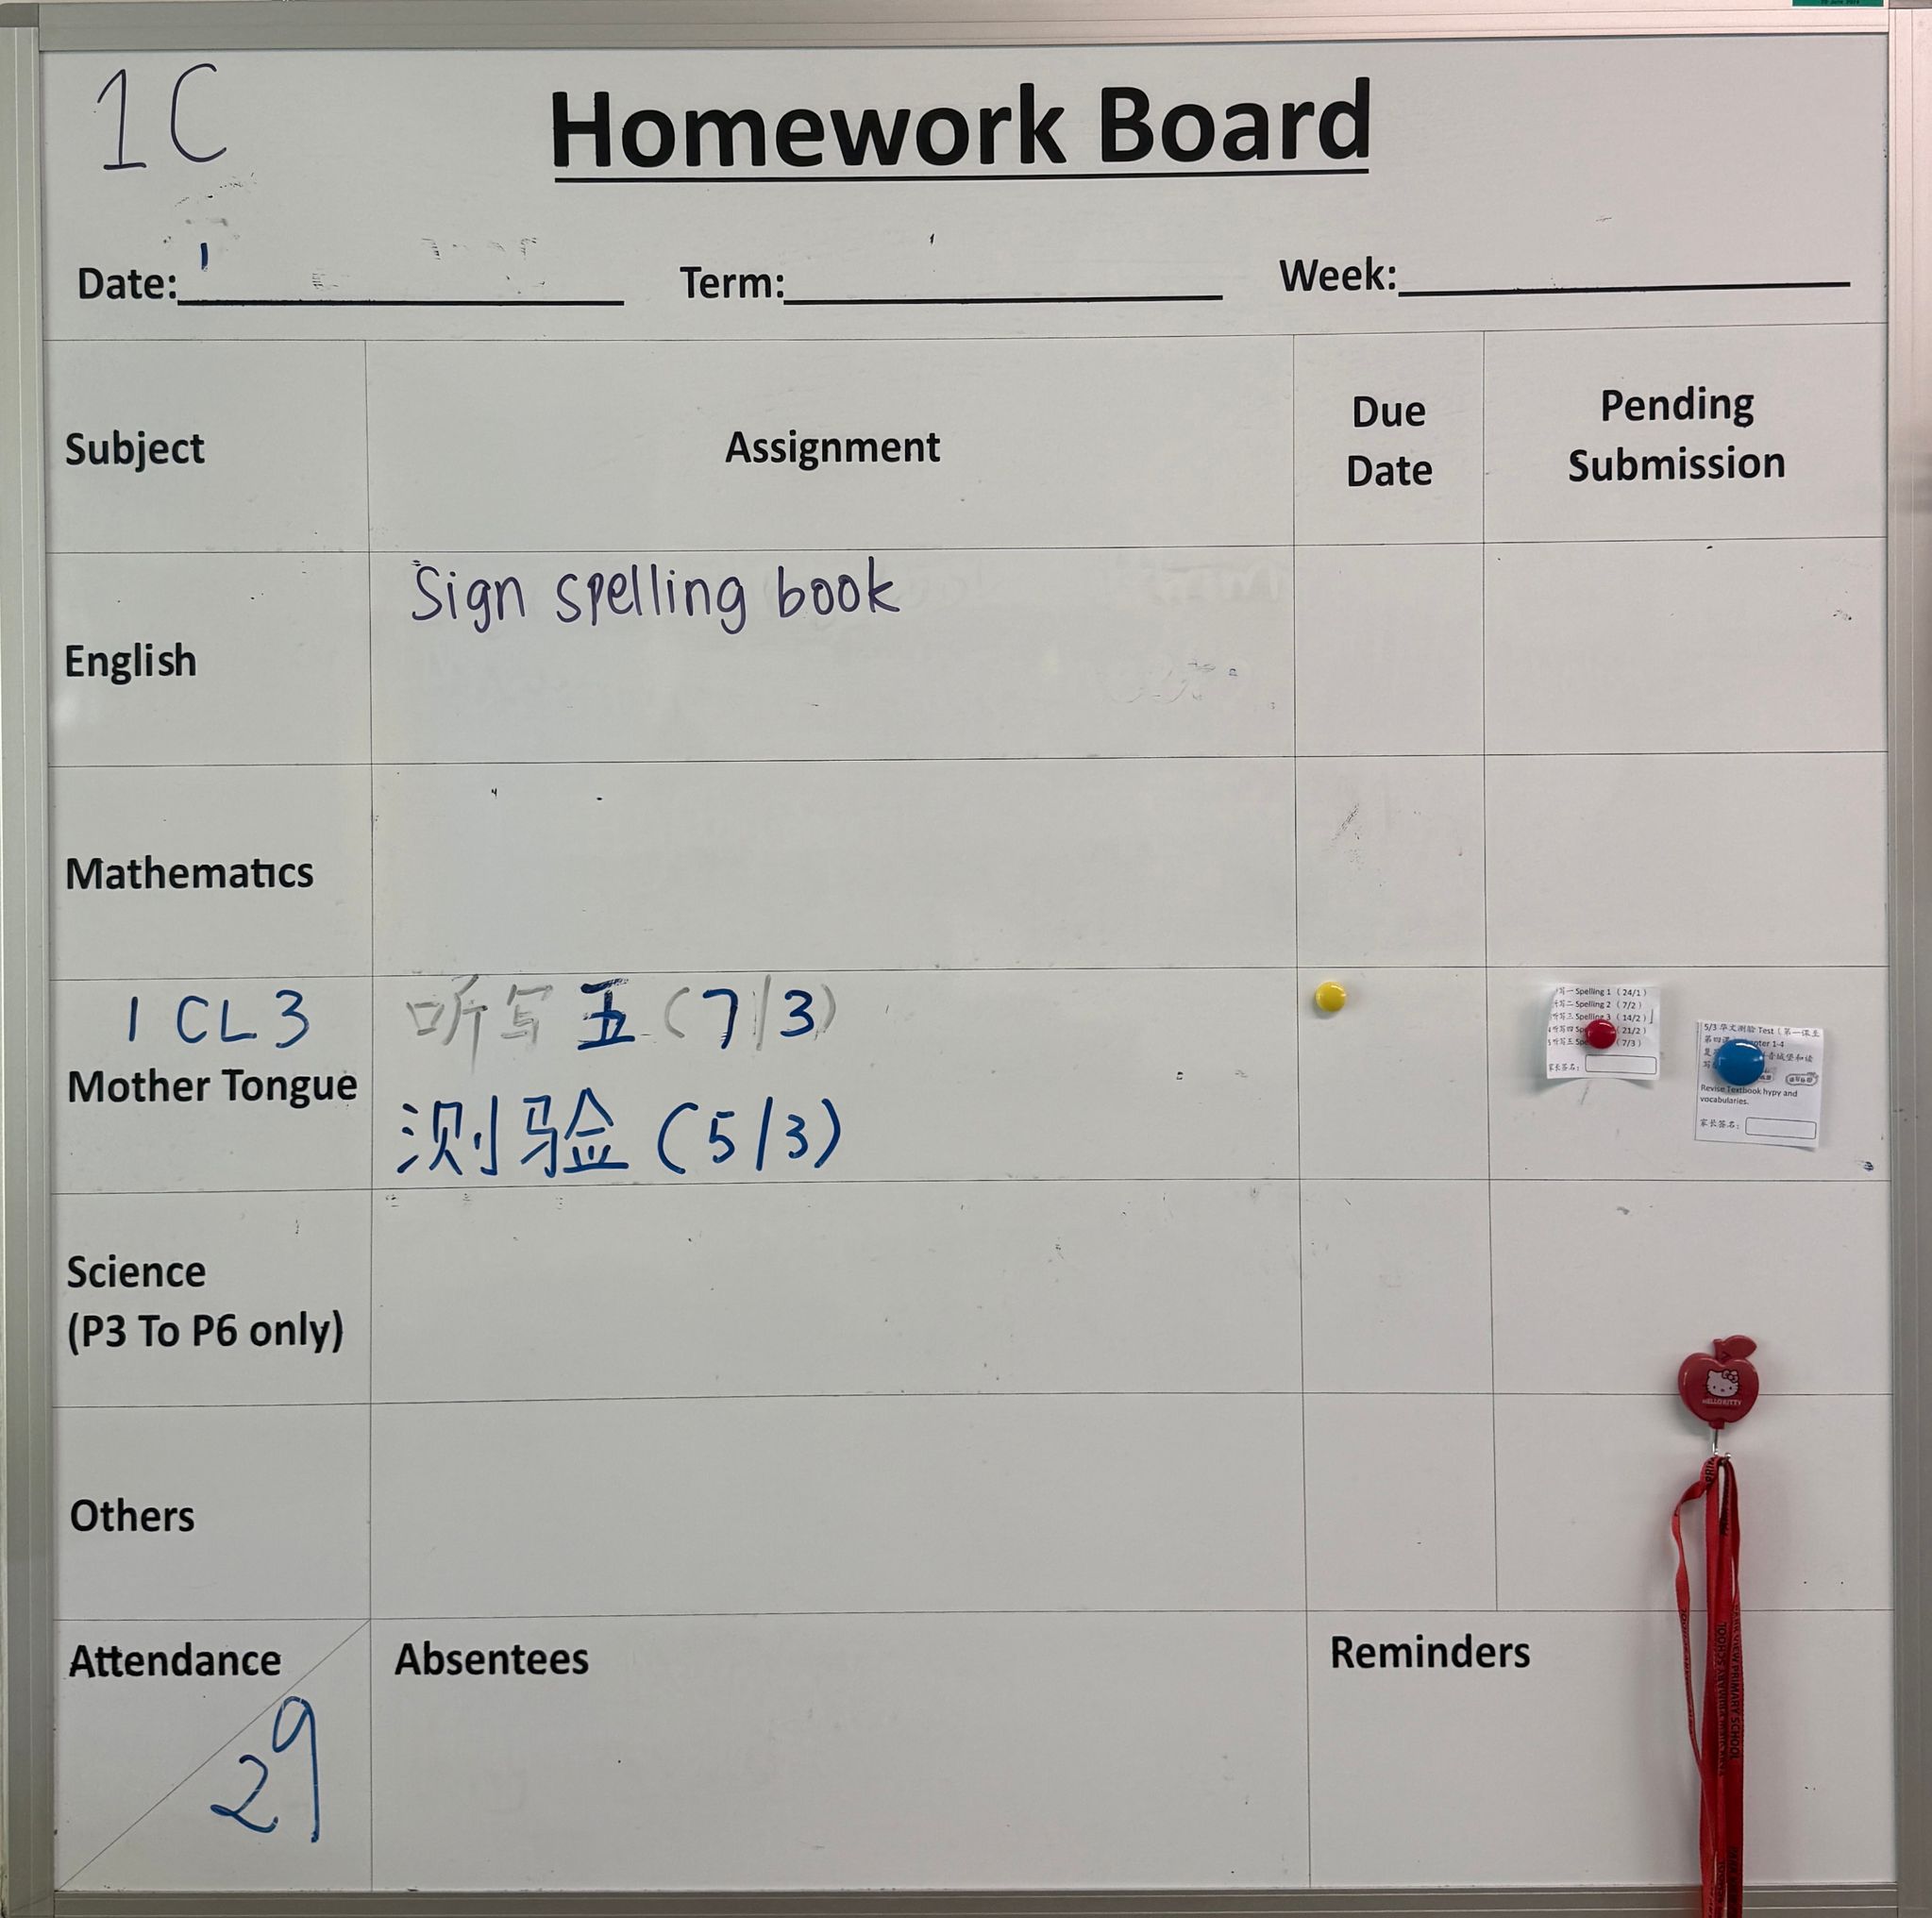 1C
Homework Board
Date:
Term:
Week:
Subject
Assignment
Due
Date
Pending
Submission
English
Sign spelling book
Mathematics
1 CL 3
Mother Tongue
听写五(7/3)
测验(5/3)
写一 Spelling 1 ( 24/1 )
写二 Spelling 2 ( 7/2 )
听写三 Spelling 3 ( 14/2 )
听写四 ( 21/2 )
听写五 ( 7/3 )
家长签名:
5/3 华文测验 Test ( 第一课至
第四课 1-4
音城堡和读
Revise Textbook hypy and
vocabularies.
家长签名:
Science
(P3 To P6 only)
HELLO KITTY
Others
Attendance
29
Absentees
Reminders
PRIMARY SCHOOL